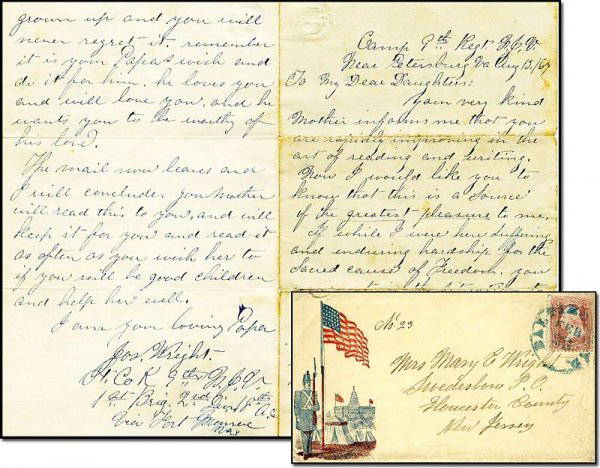 Camp 9th Regt. N.J.V.
Near Petersburg Va Aug 13, /64
To My Dear Daughters:
Your very kind
Mother informs me that you
are rapidly improving in the
art of reading and writing.
Now I would like you to
know that this is a source
of the greatest pleasure to me.
If while I were here suffering
and enduring hardship for the
Sacred causes of Freedom, you
grown up and you will
never regret it. remember
it is your Papa's wish and
do it for him. he loves you
and will love you, and he
wants you to be worthy of
his love.
The mail now leaves and
I will conclude. your Mother
will read this to you, and will
keep it for you and read it
as often as you wish her to
if you will be good children
and help her well.
I am your loving Papa
Jos. Wright
Co K 9th N.J.V.
1st Brig. 2nd Div. 18th A.C.
Via Fort Monroe
Va
No. 23
Mrs Mary E Wright
Swedesboro P.O.
Gloucester County
New Jersey
FEB